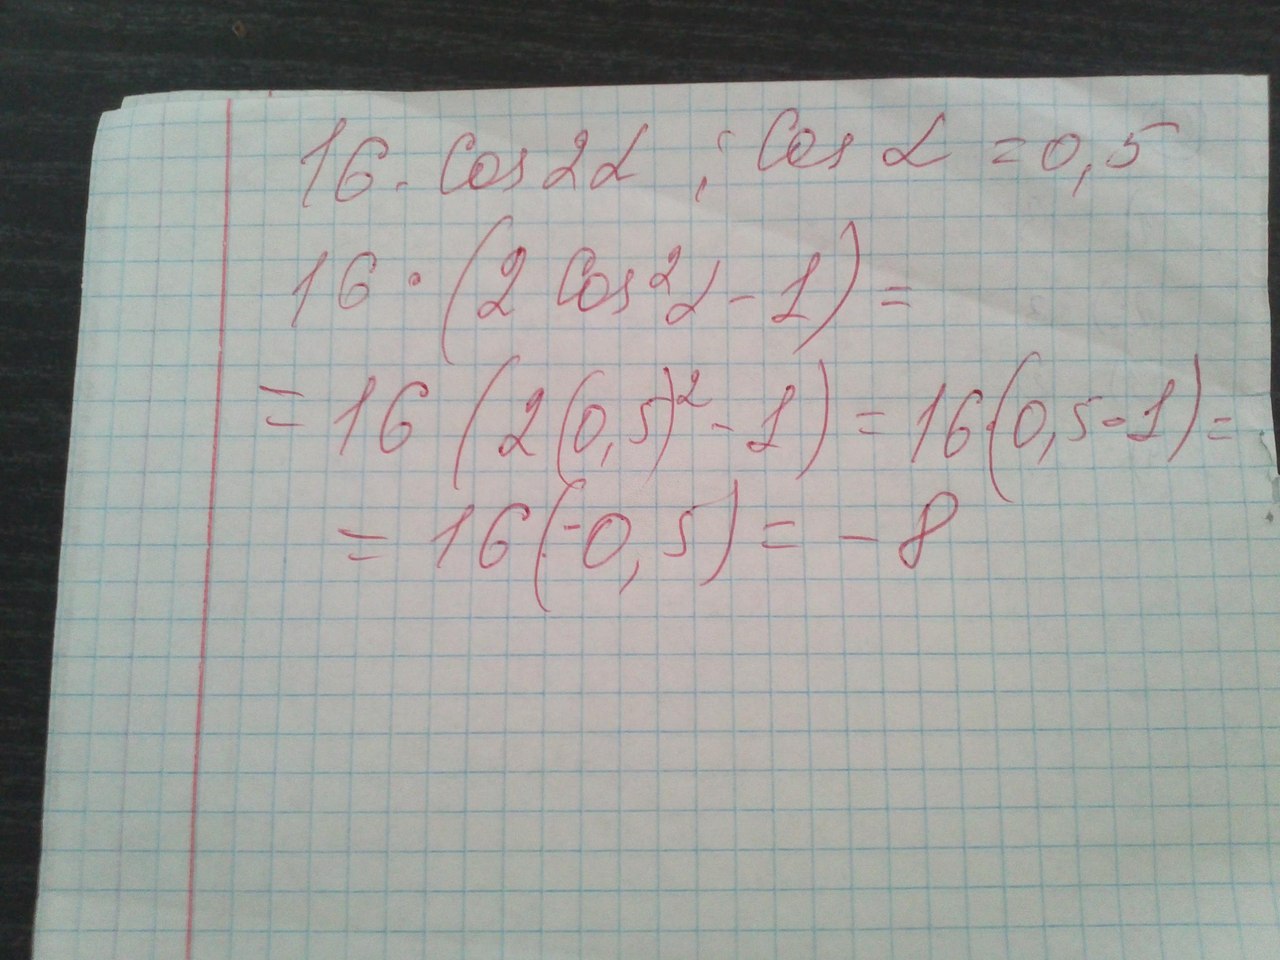 16 · cos 2α ; cos α = 0,5
16 · (2 cos²α - 1) =
= 16 (2(0,5)² - 1) = 16(0,5-1) =
= 16(-0,5) = - 8